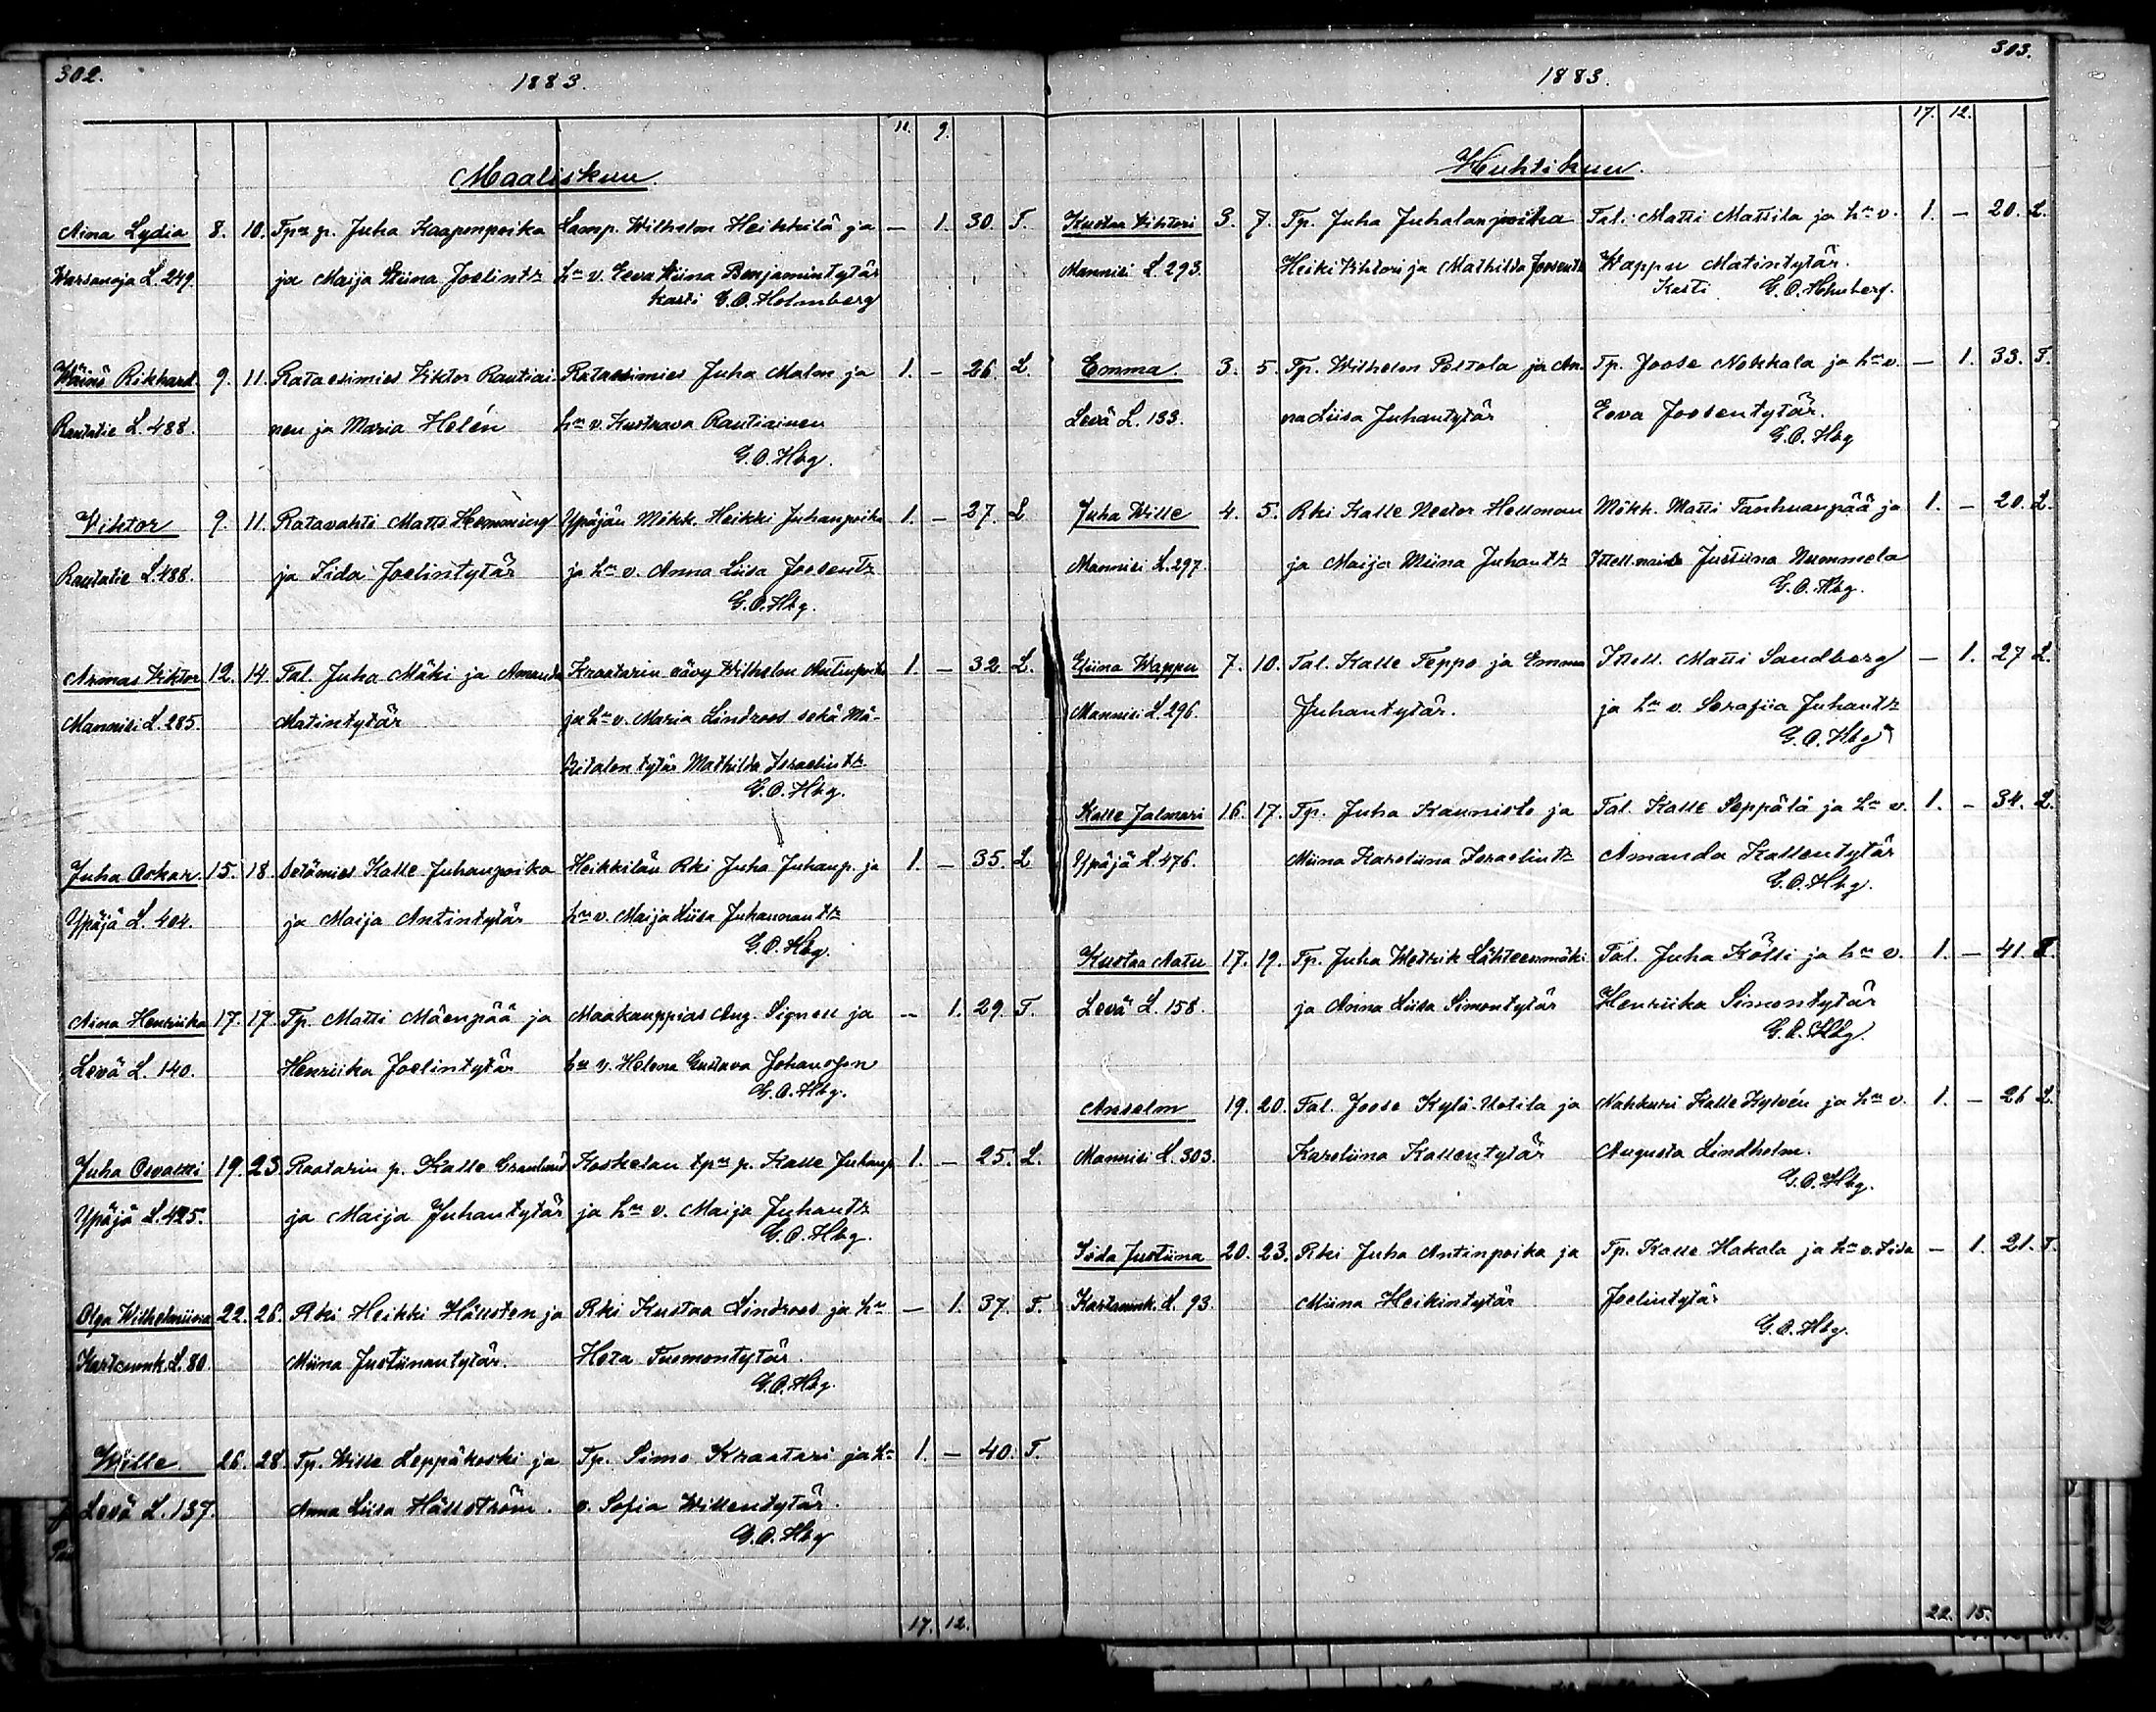 302.
1883.
11. 9.
Maaliskuu.
Aina Lydia 8. 10. Tpr p. Juha Kaapenpoika Lamp. Wilhelm Heikkilä ja — 1. 30. T.
L. 249. ja Maija Joelintr hn v. Eeva Benjamintytär
kasti G.O. Holmberg
Wäinö Rikhard 9. 11. Rataesimies Viktor Rautiai Rataesimies Juha Malm ja 1. — 26. L.
Rautatie L. 488. nen ja Maria Helén hn v. Kustaava Rautiainen
G.O. Hbg.
Viktor 9. 11. Ratavahti Matts Hemming Ypäjän Mökk. Heikki Juhanpoika 1. — 27. L
Rautatie L. 488. ja Iida Joelintytär ja hn v. Anna Liisa Joosentr
G.O. Hbg.
Armas Viktor 12. 14. Tal. Juha Mäki ja Amanda Kraatarin Wilhelm Antinpoika 1. — 32. L.
Mannisi L. 285. Matintytär ja hn v. Maria Lindroos sekä Mä-
kitalon tytär Mathilda Israelintr
G.O. Hbg.
Juha Oskar 15. 18. Kalle Juhanpoika Heikkilän Rki Juha Juhanp. ja 1. — 35. L
Ypäjä L. 404. ja Maija Antintytär hn v. Maija Liisa Juhannantr
G.O. Hbg.
Aina Henriika 17. 17. Tp. Matti Mäenpää ja Maakauppias Aug. Signell ja — 1. 29. T.
Levä L. 140. Henriika Joelintytär hn v. Helena Gustava Johansson
G.O. Hbg.
Juha Osvaltti 19. 23. Raatarin p. Kalle Granlund Kosketan tpn p. Kalle Juhanp 1. — 25. L.
Ypäjä L. 425. ja Maija Juhantytär ja hn v. Maija Juhantr
G.O. Hbg.
Olga Wilhelmiina 22. 26. Rki Heikki Hällsten ja Rki Kustaa Lindroos ja hn — 1. 37. T.
Kartanonk. L. 80. Miina Justiinantytär. Heta Tuomontytär.
G.O. Hbg.
Wille 26. 28 Tp. Wille Leppäkoski ja Tp. Simo Kraatari ja hn 1. — 40. T.
Levä L. 137. Anna Liisa Hällström. v. Sofia Willentytär.
G.O. Hbg
17. 12.
303.
1883.
17. 12.
Huhtikuu.
Kustaa Vihtori 3. 7. Tp. Juha Juhalanpoika Tal. Matti Mattila ja hn v. 1. — 20. L.
Mannisi L. 293. Heiki Vihtori ja Mathilda Joosentr Wappu Matintytär.
Kasti G.O. Holmberg.
Emma 3. 5. Tp. Wilhelm Peltola ja An. Tp. Joose Nokkala ja hn v. — 1. 33. T.
Levä L. 133. na Liisa Juhantytär Eeva Joosentytär.
G.O. Hbg
Juha Wille 4. 5. Rki Kalle Nestor Hellman Mökk. Matti Tanhuanpää ja 1. — 20. L.
Mannisi L. 297. ja Maija Miina Juhantr Justiina Nummela
G.O. Hbg.
Eliina Wappu 7. 10. Tal. Kalle Teppo ja Emma Itsell. Matti Sandberg — 1. 27 L.
Mannisi L. 296. Juhantytär. ja hn v. Serafiia Juhantr
G.O. Hbg
Kalle Jalmari 16. 17. Tp. Juha Kaunisto ja Tal. Kalle Seppälä ja hn v. 1. — 34. L.
Ypäjä L. 476. Miina Karoliina Israelintr Amanda Kallentytär
G.O. Hbg.
Kustaa Aatu 17. 19. Tp. Juha Wettrik Lähteenmäki Tal. Juha Kölli ja hn v. 1. — 41. T.
Levä L. 158. ja Anna Liisa Simontytär Henriika Simontytär
G.O. Hbg.
Anselm 19. 20. Tal. Joose Kylä-Uotila ja Nahkuri Kalle Kylvén ja hn v. 1. — 26 L.
Mannisi L. 303. Karoliina Kallentytär Augusta Lindholm.
G.O. Hbg.
Iida Justiina 20. 23. Rki Juha Antinpoika ja Tp. Kalle Hakala ja hn v. Iida — 1. 21. T.
Kartanonk. L. 93. Miina Heikintytär Joelintytär
G.O. Hbg.
22. 15.